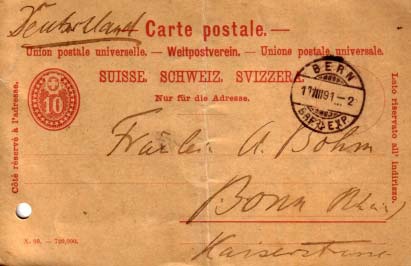 Deutschland
Carte postale.—
Union postale universelle. — Weltpostverein. — Unione postale universale.
SUISSE. SCHWEIZ. SVIZZERA.
Nur für die Adresse.
Côté réservé à l'adresse.
10
BERN
11 VIII 91 – 2
BRF. EXP.
Lato riservato all' indirizzo.
Fräulein A. Böhm
Bonn Rhein
Kaiserstrasse
X. 90. — 720,000.